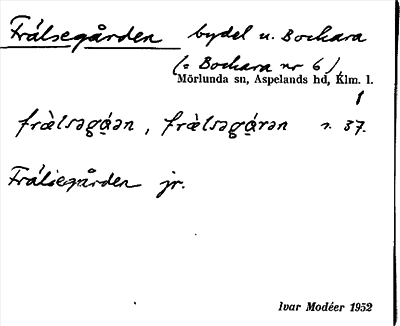 Frälsegården bydel u. Bockara
(= Bockara nr 6)
Mörlunda sn, Aspelands hd, Klm. l.
frälsəgá̤ən, frälsəgá̤rən s. 37.
Frälsegården jr.
Ivar Modéer 1952